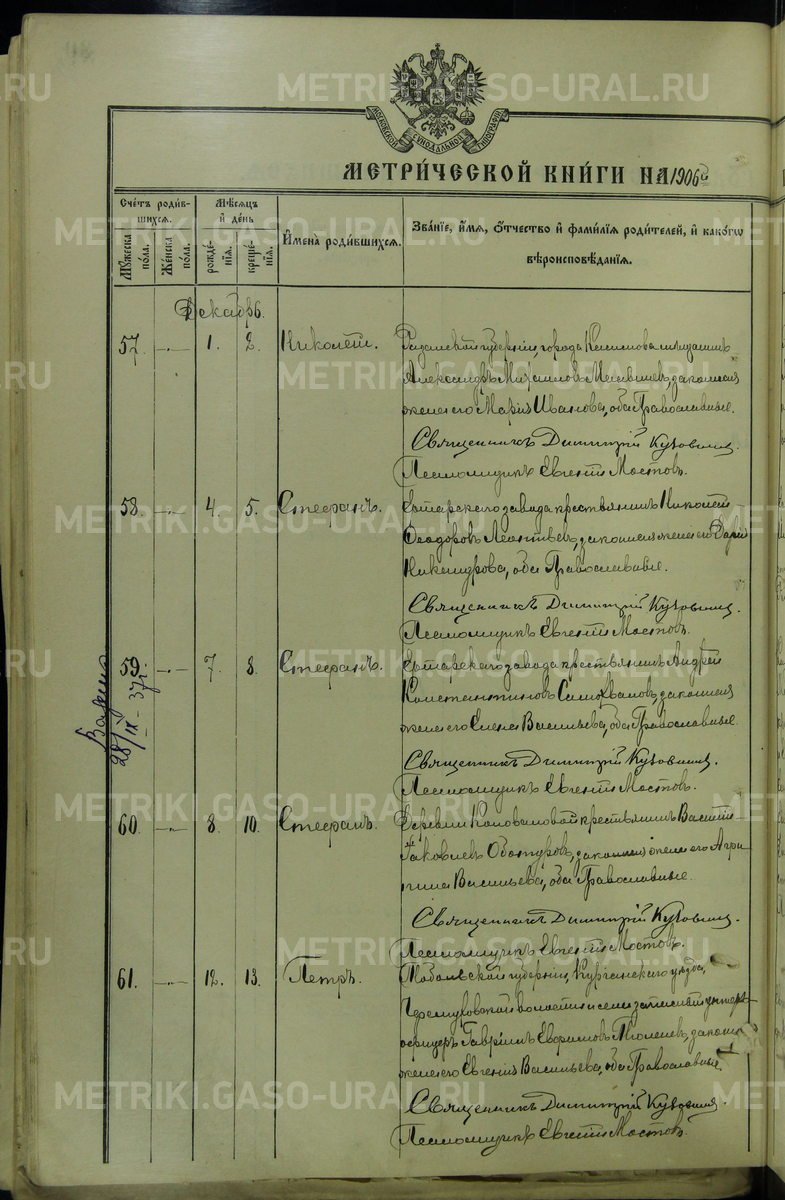 МОСКОВСКОЙ СУНОДАЛЬНОЙ ТИПОГРАФІИ
МЕТРИ́ЧЕСКОЙ КНИ́ГИ НА 1906 й
Сче́тъ роди́в-
шихся.
Мѣ́сяцъ
и҆ де́нь
Мꙋ́жеска
по́ла.
Же́нска
по́ла.
рожде́-
нїя.
креще́-
нїя.
И҆мена̀ роди́вшихся.
Зва́нїе, и҆́мя, ѻ҆́тчество и҆ фами́лїя роди́телей, и҆ како́гѡ
вѣроисповѣ́данїя.
Декабрь.
57. —„— 1. 2. Николай.
Рязанской губерніи, города Касимова мѣщанинъ
Александръ Михаиловъ, законная
жена его Марія Иванова, оба Православные.
Священникъ Димитрій Кузовниковъ.
Псаломщикъ Евгеній Мостовъ.
58. —„— 4. 5. Стефанъ.
Ертарскаго завода крестьянинъ Николай
Ѳеодоровъ Леонтьевъ, законная жена его Дарія
Никандрова, оба Православные.
Священникъ Димитрій Кузовниковъ.
Псаломщикъ Евгеній Мостовъ.
59. —„— 7. 8. Стефанъ.
28/IX-37г.
Ертарскаго завода крестьянинъ Андрей
Константиновъ Самохваловъ, законная
жена его Елена Васильева, оба Православные.
Священникъ Димитрій Кузовниковъ.
Псаломщикъ Евгеній Мостовъ.
60. —„— 8. 10. Стефанъ.
Деревни Коноваловой крестьянинъ Василій
Іаковлевъ, законная жена его Агри-
пина Васильева, оба Православные.
Священникъ Димитрій Кузовниковъ.
Псаломщикъ Евгеній Мостовъ.
61. —„— 12. 13. Петръ.
Тобольской губерніи, Курганскаго уѣзда,
волости и села запасный унтеръ-
офицеръ Гавріилъ Евфимовъ Тюленевъ, законная
жена его Евгенія Васильева, оба Православные.
Священникъ Димитрій Кузовниковъ.
Псаломщикъ Евгеній Мостовъ.
METRIKI.GASO-URAL.RU